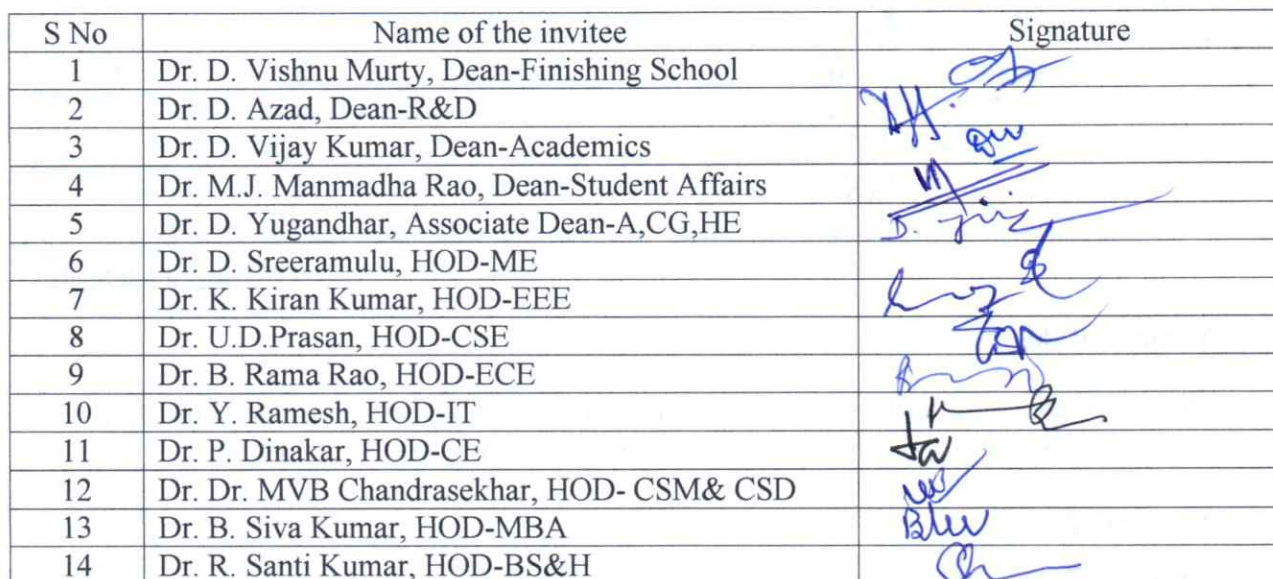 S No Name of the invitee Signature
1 Dr. D. Vishnu Murty, Dean-Finishing School
2 Dr. D. Azad, Dean-R&D
3 Dr. D. Vijay Kumar, Dean-Academics
4 Dr. M.J. Manmadha Rao, Dean-Student Affairs
5 Dr. D. Yugandhar, Associate Dean-A,CG,HE
6 Dr. D. Sreeramulu, HOD-ME
7 Dr. K. Kiran Kumar, HOD-EEE
8 Dr. U.D.Prasan, HOD-CSE
9 Dr. B. Rama Rao, HOD-ECE
10 Dr. Y. Ramesh, HOD-IT
11 Dr. P. Dinakar, HOD-CE
12 Dr. Dr. MVB Chandrasekhar, HOD- CSM& CSD
13 Dr. B. Siva Kumar, HOD-MBA
14 Dr. R. Santi Kumar, HOD-BS&H